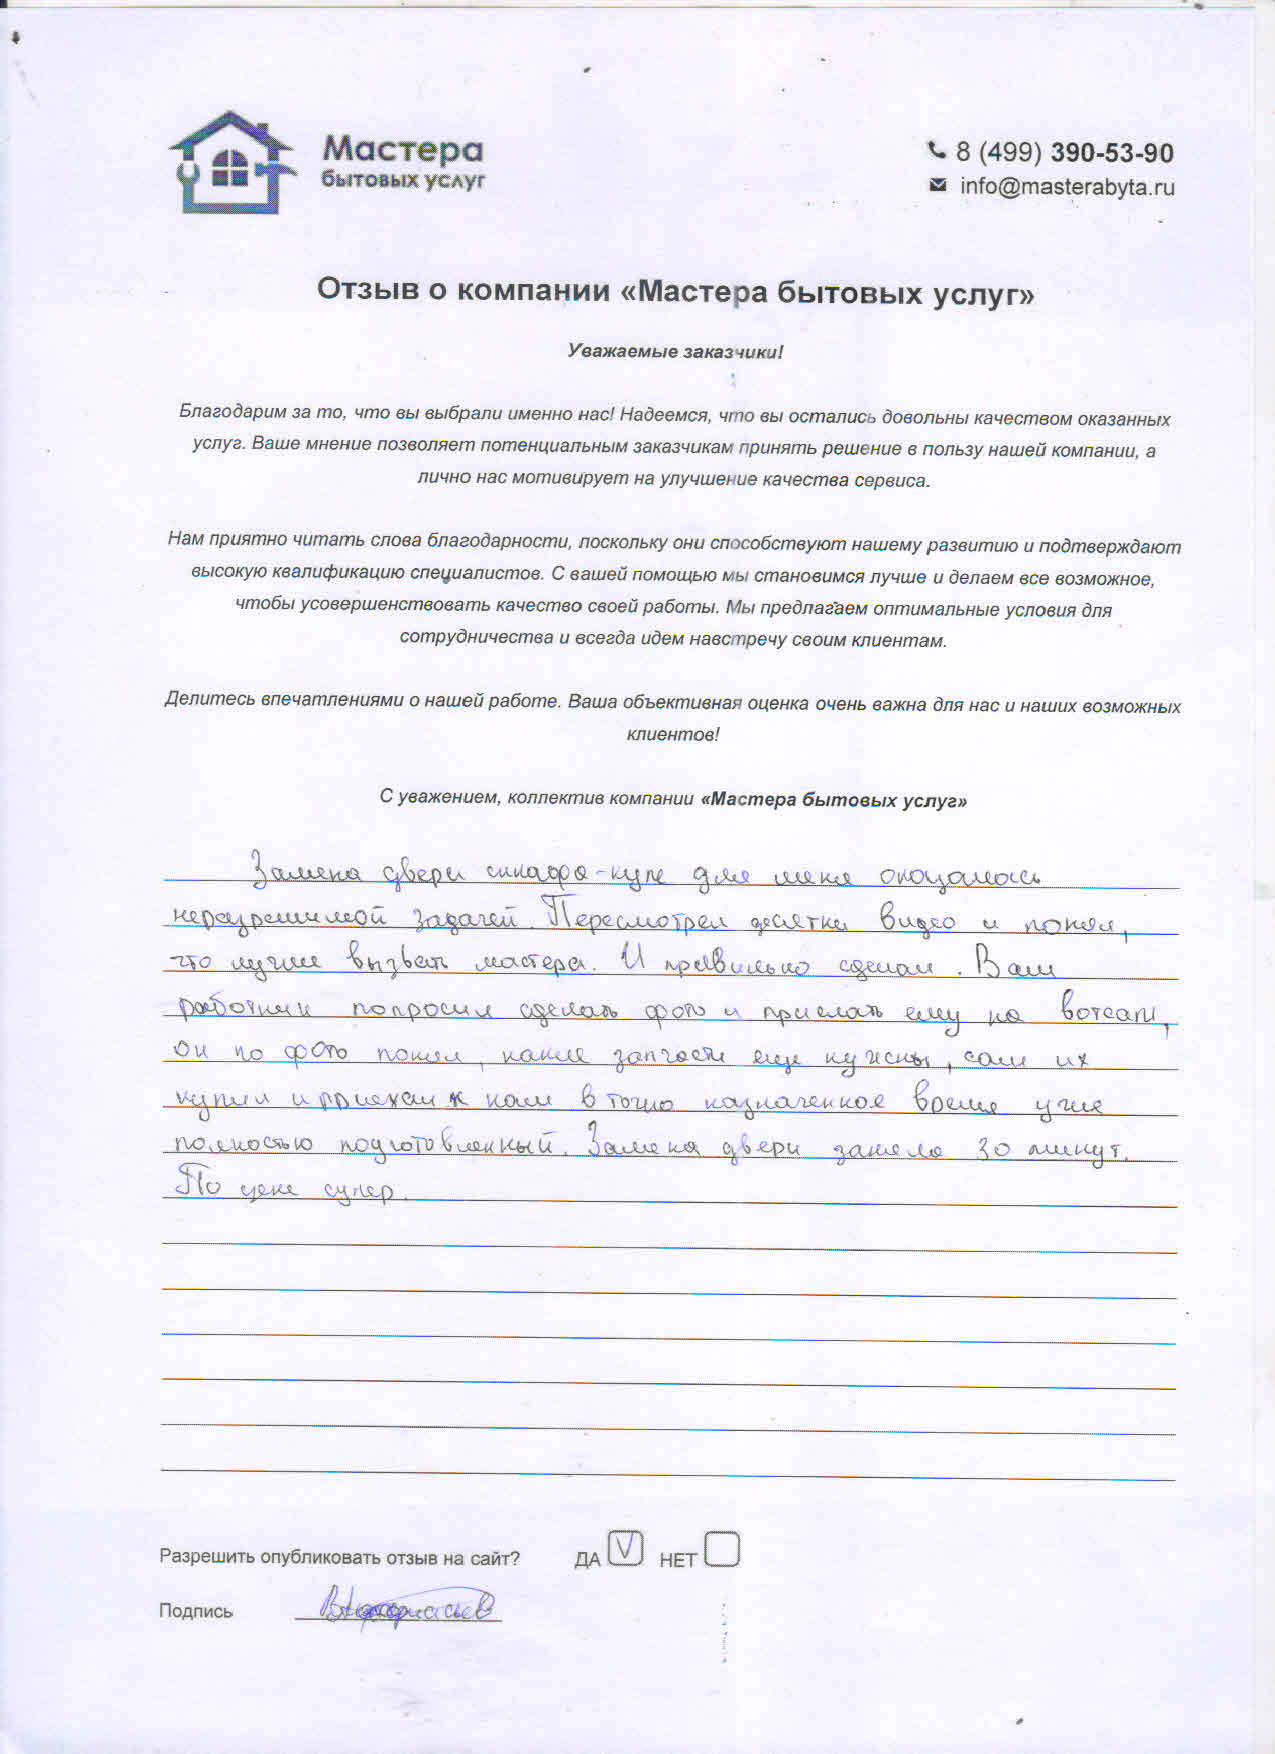 Мастера
бытовых услуг
8 (499) 390-53-90
info@masterabyta.ru
Отзыв о компании «Мастера бытовых услуг»
Уважаемые заказчики!
Благодарим за то, что вы выбрали именно нас! Надеемся, что вы остались довольны качеством оказанных
услуг. Ваше мнение позволяет потенциальным заказчикам принять решение в пользу нашей компании, а
лично нас мотивирует на улучшение качества сервиса.
Нам приятно читать слова благодарности, поскольку они способствуют нашему развитию и подтверждают
высокую квалификацию специалистов. С вашей помощью мы становимся лучше и делаем все возможное,
чтобы усовершенствовать качество своей работы. Мы предлагаем оптимальные условия для
сотрудничества и всегда идем навстречу своим клиентам.
Делитесь впечатлениями о нашей работе. Ваша объективная оценка очень важна для нас и наших возможных
клиентов!
С уважением, коллектив компании «Мастера бытовых услуг»
Замена двери шкафа-купе для меня оказалась
неразрешимой задачей. Пересмотрел десятки видео и понял,
что лучше вызвать мастера. И правильно сделал. Ваш
работник попросил сделать фото и прислать ему на вотсап,
он по фото понял, какие запчасти еще нужны, сам их
купил и приехал к нам в точно назначенное время уже
полностью подготовленный. Замена двери заняла 30 минут.
По цене супер.
Разрешить опубликовать отзыв на сайт? ДА V НЕТ
Подпись